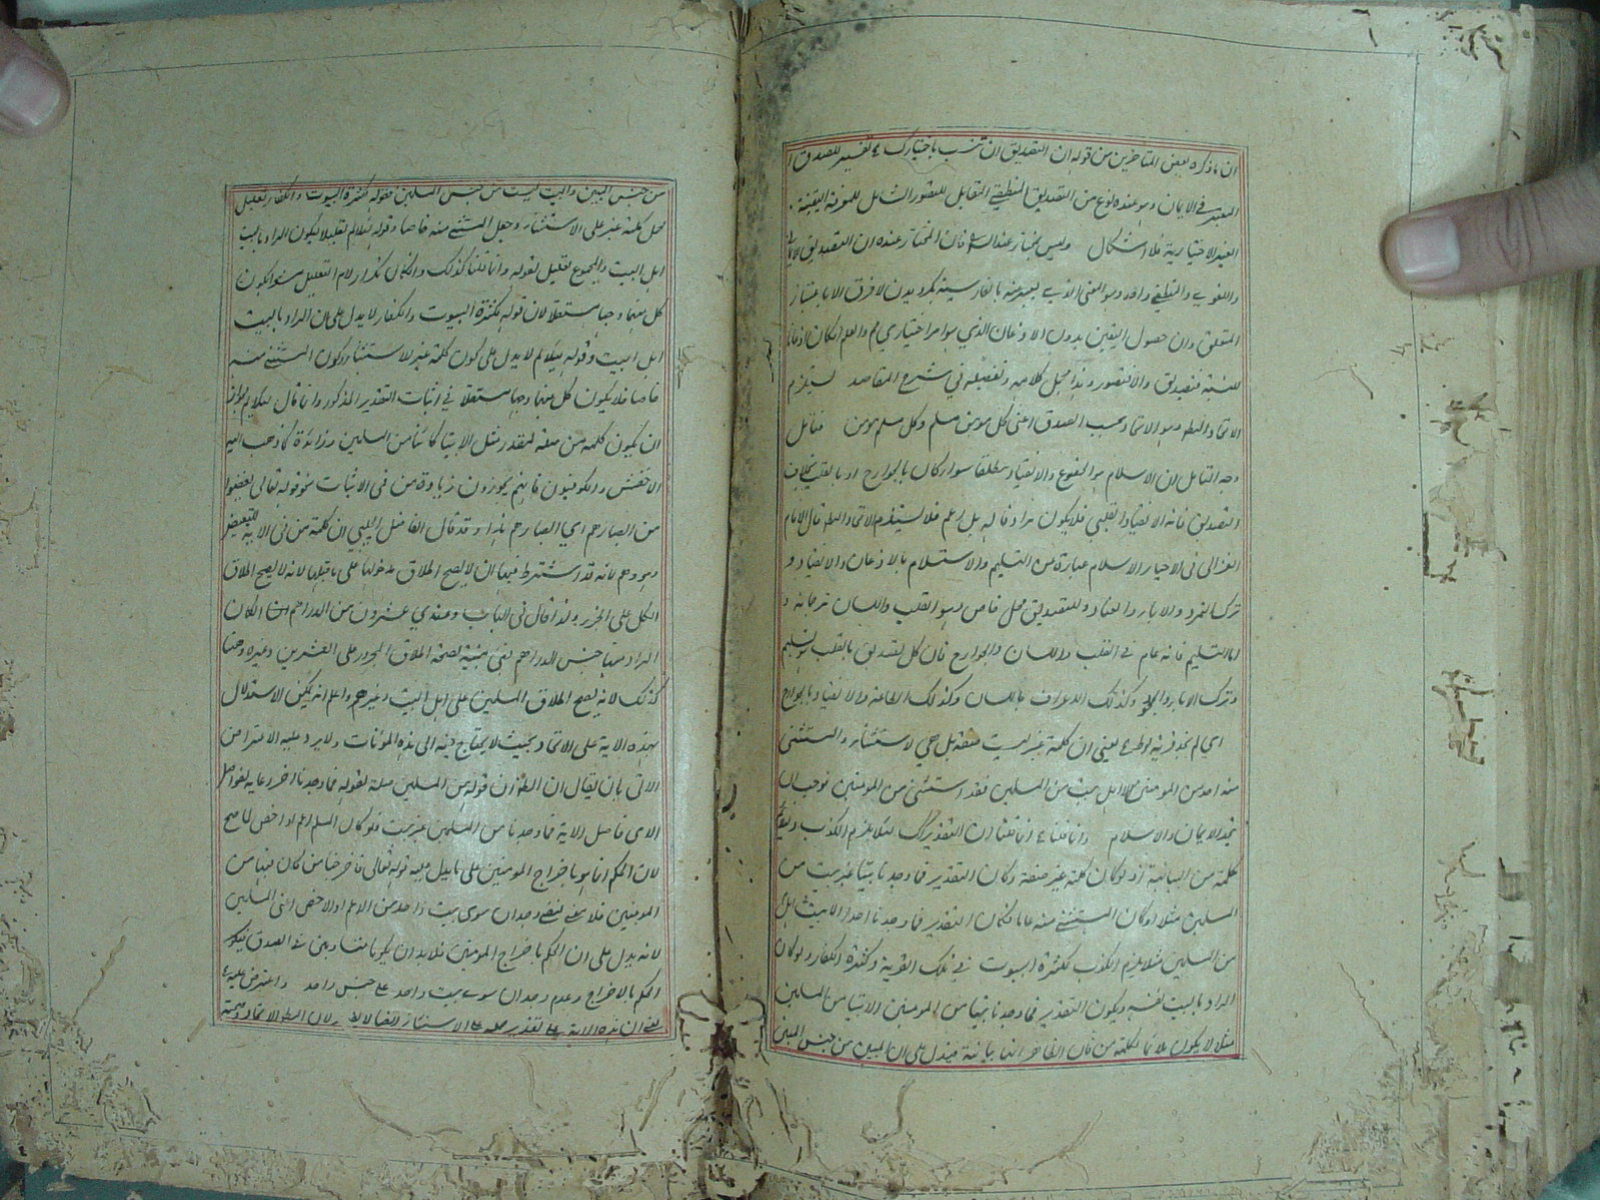 ان ما ذكره بعض المتأخرين من قوله ان التصديق ان تنسب باختيارك تفسير للتصديق
المعتبر في الايمان وهو عنده نوع من التصديق المنطقي المقابل للتصور الشامل للمعرفة اليقينية
الغير الاختيارية فلا اشكال وليس بمختار عند الش فان المختار عنده ان التصديق
واللغوي والمنطقي واحد وهو المعنى الذي يعبر عنه بالفارسية بكرويدن لا فرق الا باعتبار
المتعلق وان حصول اليقين بدون الاذعان الذي هو امر اختياري مم والعلم ان كان اذعانا
للنسبة فتصديق والا فتصور وهذا مجمل كلامه وتفصيله في شرح المقاصد يستلزم
الاتحاد المط وهو الاتحاد بحسب الصدق اعنى كل مؤمن مسلم وكل مسلم مؤمن فتأمل
وجه التأمل ان الاسلام هو الخضوع والانقياد مطلقا سواء كان بالجوارح او بالقلب بخلاف
التصديق فانه الانقياد القلبي فلا يكون مرادفا له بل اعم فلا يستلزم الاتحاد المط قال الامام
الغزالى في الاحياء الاسلام عبارة من التسليم والاستسلام بالاذعان والانقياد و
ترك التمرد والاباء والعناد وللتصديق محل خاص وهو القلب واللسان ترجمانه و
اما التسليم فانه عام في القلب واللسان والجوارح فان كل تصديق بالقلب هو تسليم
وترك الاباء والجحود وكذلك الاعتراف باللسان وكذلك الطاعة والانقياد بالجوارح
اي لم نجد في قرية لوط يعنى ان كلمة غير ليست صفة بل هي لاستثناء والمستثنى
منه احد من المؤمنين اهل بيت من المسلمين فقد استثنى من المؤمنين فوجب ان
يتحد الايمان والاسلام وانما قلنا انما قلنا ان التقدير كذلك لئلا يلزم الكذب
كلمة من البيانية اذ لو كان كلمة غير صفة وكان التقدير فما وجدنا بيتا غير بيت من
المسلمين مثلا او كان المستثنى منه عاما فكان التقدير فما وجدنا احدا الا بيت اهل
من المسلمين مثلا يلزم الكذب لكثرة البيوت في تلك القرية وكثرة الكفار ولو كان
المراد بالبيت نفسه ويكون التقدير فما وجدنا بيتا من المؤمنين الا بيتا من المسلمين
مثلا لا يكون ملائما لكلمة من فان الظاهر انها بيانية فيدل على ان المبين من جنس المبين
من جنس المبين والبيت ليست من جنس المسلمين فقوله لكثرة البيوت والكفار تعليل
لحمل كلمة غير على الاستثناء وجعل المستثنى منه خاصا وقوله ليلائم تعليل ليكون المراد بالبيت
اهل البيت والمجموع تعليل لقوله وانما قلنا كذلك وانكان تكرار لام التعليل مشعرا بكون
كل منهما وجها مستقلا لان قوله لكثرة البيوت والكفار لا يدل على ان المراد بالبيت
اهل البيت وقوله ليلائم لا يدل على كون كلمة غير للاستثناء وكون المستثنى منه
خاصا فلا يكون كل منهما وجها مستقلا في اثبات التقدير المذكور وانما قال ليلائم لجواز
ان يكون كلمة من صلة لمقدر مثل الا بيتا كائنا من المسلمين وزائدة كما ذهب اليه
الاخفش والكوفيون فانهم يجوزون زيادة من في الاثبات نحو قوله تعالى يغضوا
من ابصارهم اي ابصارهم هذا وقد قال الفاضل الچلبي ان كلمة من في الاية للتبعيض
وهو وهم لانه قد اشترط فيها ان لا يصح اطلاق مدخولها على ما قبلها لانه لا يصح اطلاق
الكل على الجزء ولذا قال في اللباب وعندي عشرون من الدراهم ان كان
المراد منها جنس الدراهم فمن مبينة لصحة اطلاق المجرور على العشرين وغيره وههنا
كذلك لانه يصح اطلاق المسلمين على اهل البيت وغيرهم واعلم انه يمكن الاستدلال
بهذه الاية على الاتحاد بحيث لا يحتاج فيه الى هذه المؤنات ولا يرد عليه الاعتراض
الاتى بان يقال ان الظ ان قوله من المسلمين صلة لقوله فما وجدنا اخر رعاية لفواصل
الاى فاصل الاية فما وجدنا من المسلمين غير بيت فلو كان المسلم اعم او اخص لما صح
لان الحكم انما هو باخراج المؤمنين على ما يدل عليه قوله تعالى فاخرجنا من كان فيها من
المؤمنين فلا معنى لنفي وجدان سوى بيت واحد من الاعم او الاخص اعنى المسلمين
لانه يدل على ان الحكم باخراج المؤمنين فلا بد ان يكونا متحدين في الصدق ليكون
الحكم بالاخراج وعدم وجدان سوى بيت واحد على جنس واحد واعترض عليه
يعنى ان هذه الاية على تقدير حمله على الاستثناء